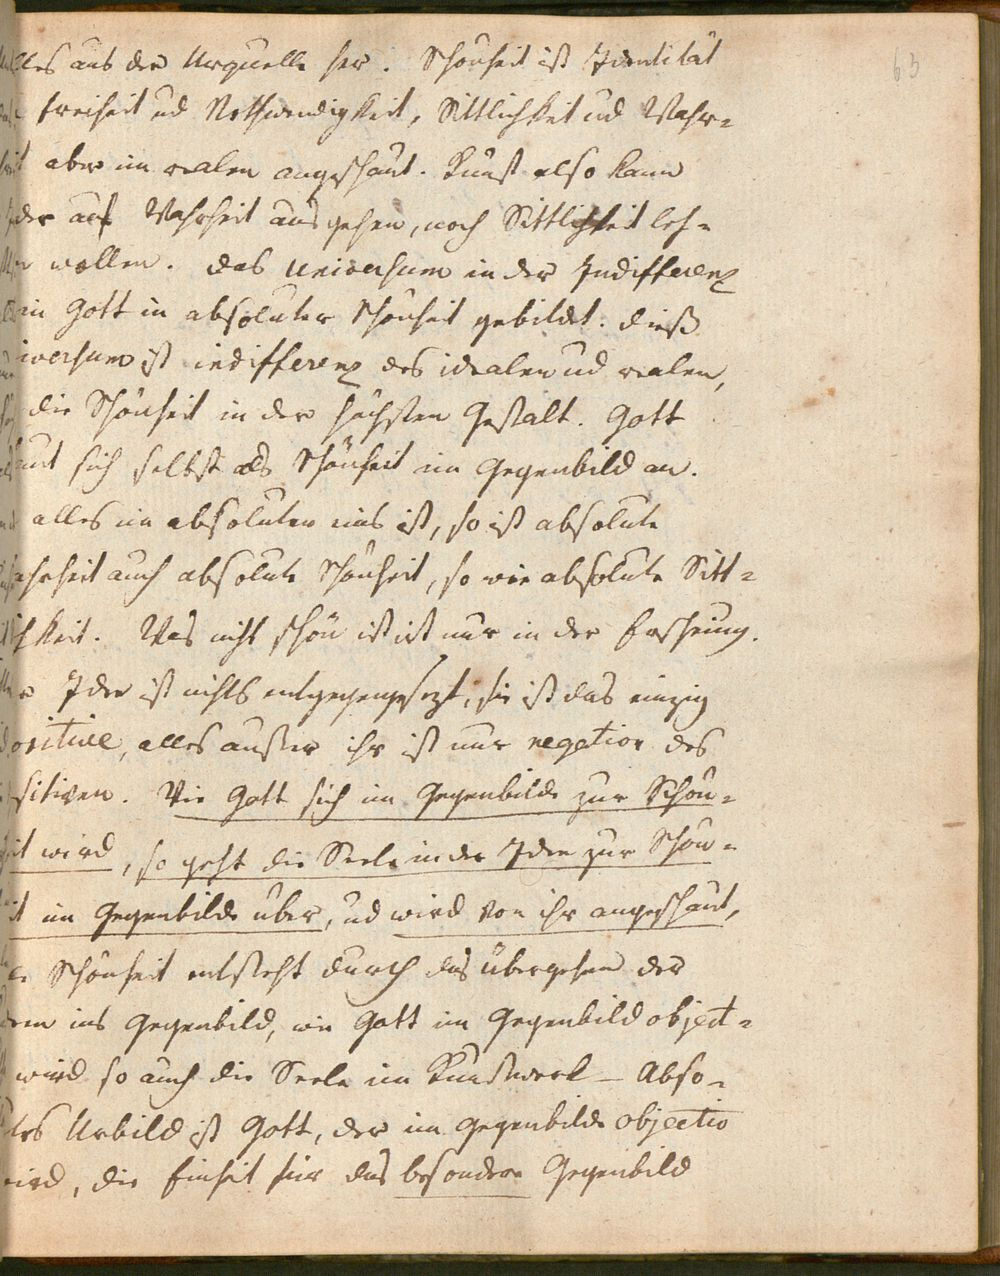 63
lles aus der Urquelle her. Schönheit ist Identität
Freiheit ud Nothwendigkeit, Sittlichkeit ud Wahr=
aber im realen angeschaut. Kunst also kann
der auf Wahrheit ausgehen, noch Sittlichkeit leh=
wollen. Das Universum in der Indifferenz
in Gott in absoluter Schönheit gebildet. Dieß
iversum ist indifferenz des idealen ud realen,
die Schönheit in der höchsten Gestalt. Gott
aut sich selbst als Schönheit im Gegenbild an.
alles im absoluten eins ist, so ist absolute
ahrheit auch absolute Schönheit, so wie absolute Sitt=
hkeit. Was nicht schön ist ist nur in der Erscheinung.
r Idee ist nichts entgegengesezt, sie ist das einzig
positive, alles ausser ihr ist nur negation des
sitiven. Wie Gott sich im Gegenbilde zur Schön=
it wird, so geht die Seele in der Idee zur Schön=
it im Gegenbilde über, ud wird von ihr angeschaut,
Schönheit entsteht durch das übergehen der
een ins Gegenbild, wie Gott im Gegenbild object=
wird so auch die Seele im Kunstwerk – Abso=
tes Urbild ist Gott, der im Gegenbilde objectiv
ird, die Einheit für das besondere Gegenbild